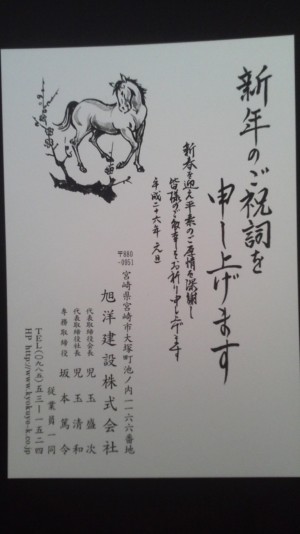 新年のご祝詞を
申し上げます
新春を迎え平素のご厚情を深謝し
皆様のご多幸をお祈り申し上げます
平成二十六年 元旦
〒880-0951
宮崎県宮崎市大塚町池ノ内一一六六番地
旭洋建設株式会社
代表取締役会長 児玉盛次
代表取締役社長 児玉清和
専務取締役 坂本篤令
従業員一同
TEL(〇九八五)五三―一五二四
HP http://www.kyokuyo-k.co.jp